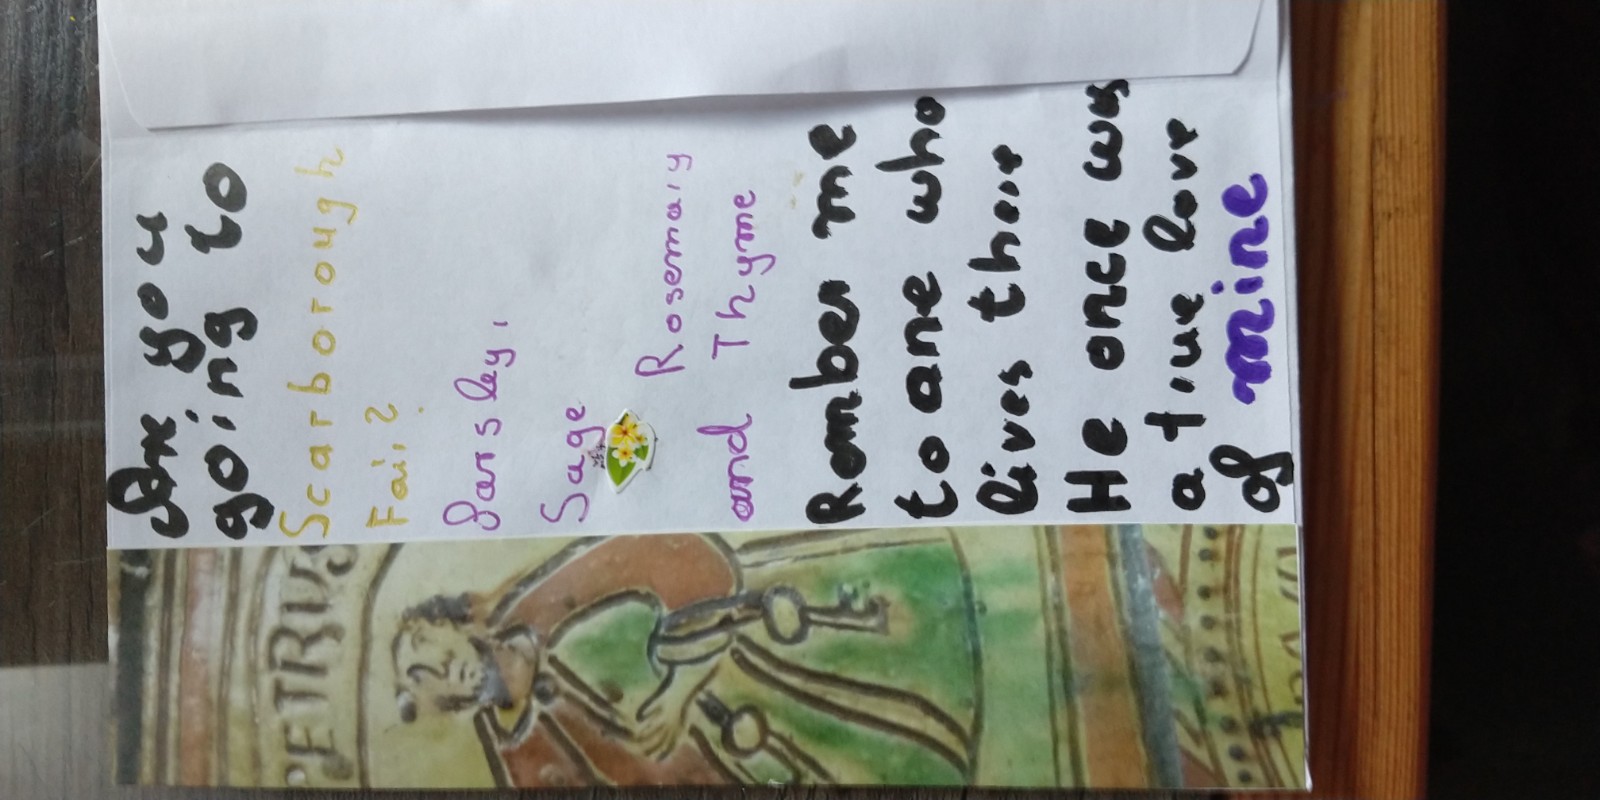 Are you
going to
Scarborough
Fair?
Parsley,
Sage
Rosemary
and Thyme
Rember me
to one who
lives there
He once was
a true love
of mine
PETRVS